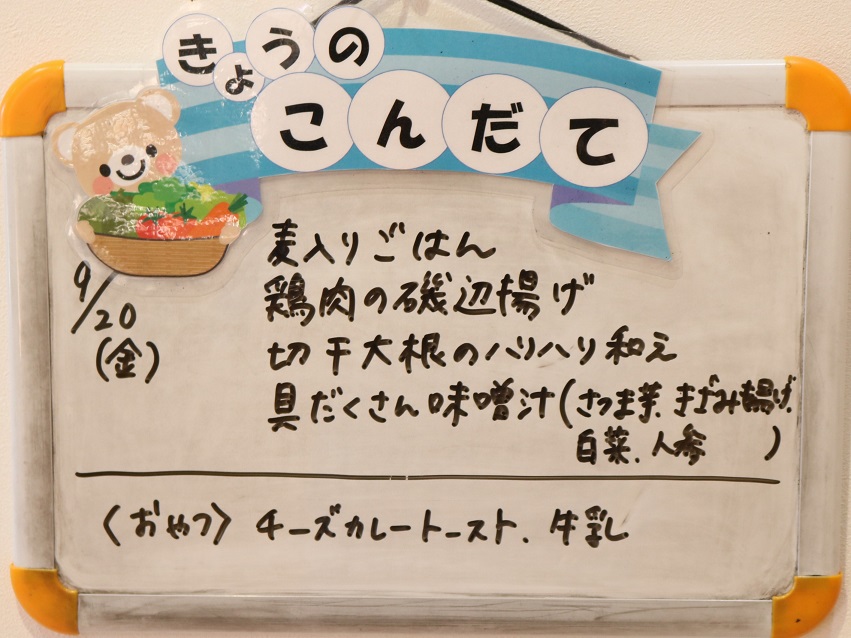 きょうの
こんだて
9/20
(金)
麦入りごはん
鶏肉の磯辺揚げ
切干大根のハリハリ和え
具だくさん味噌汁(さつま芋、きざみ揚げ、
白菜、人参 )
〈おやつ〉 チーズカレートースト、牛乳